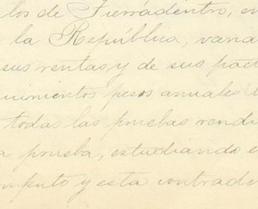 los de Tierradentro, en
la República, vana
sus rentas y de sus pact
uinientos pesos anuales
todas las pruebas rendi
a prueba, estudiando e
mputo y esta contrade